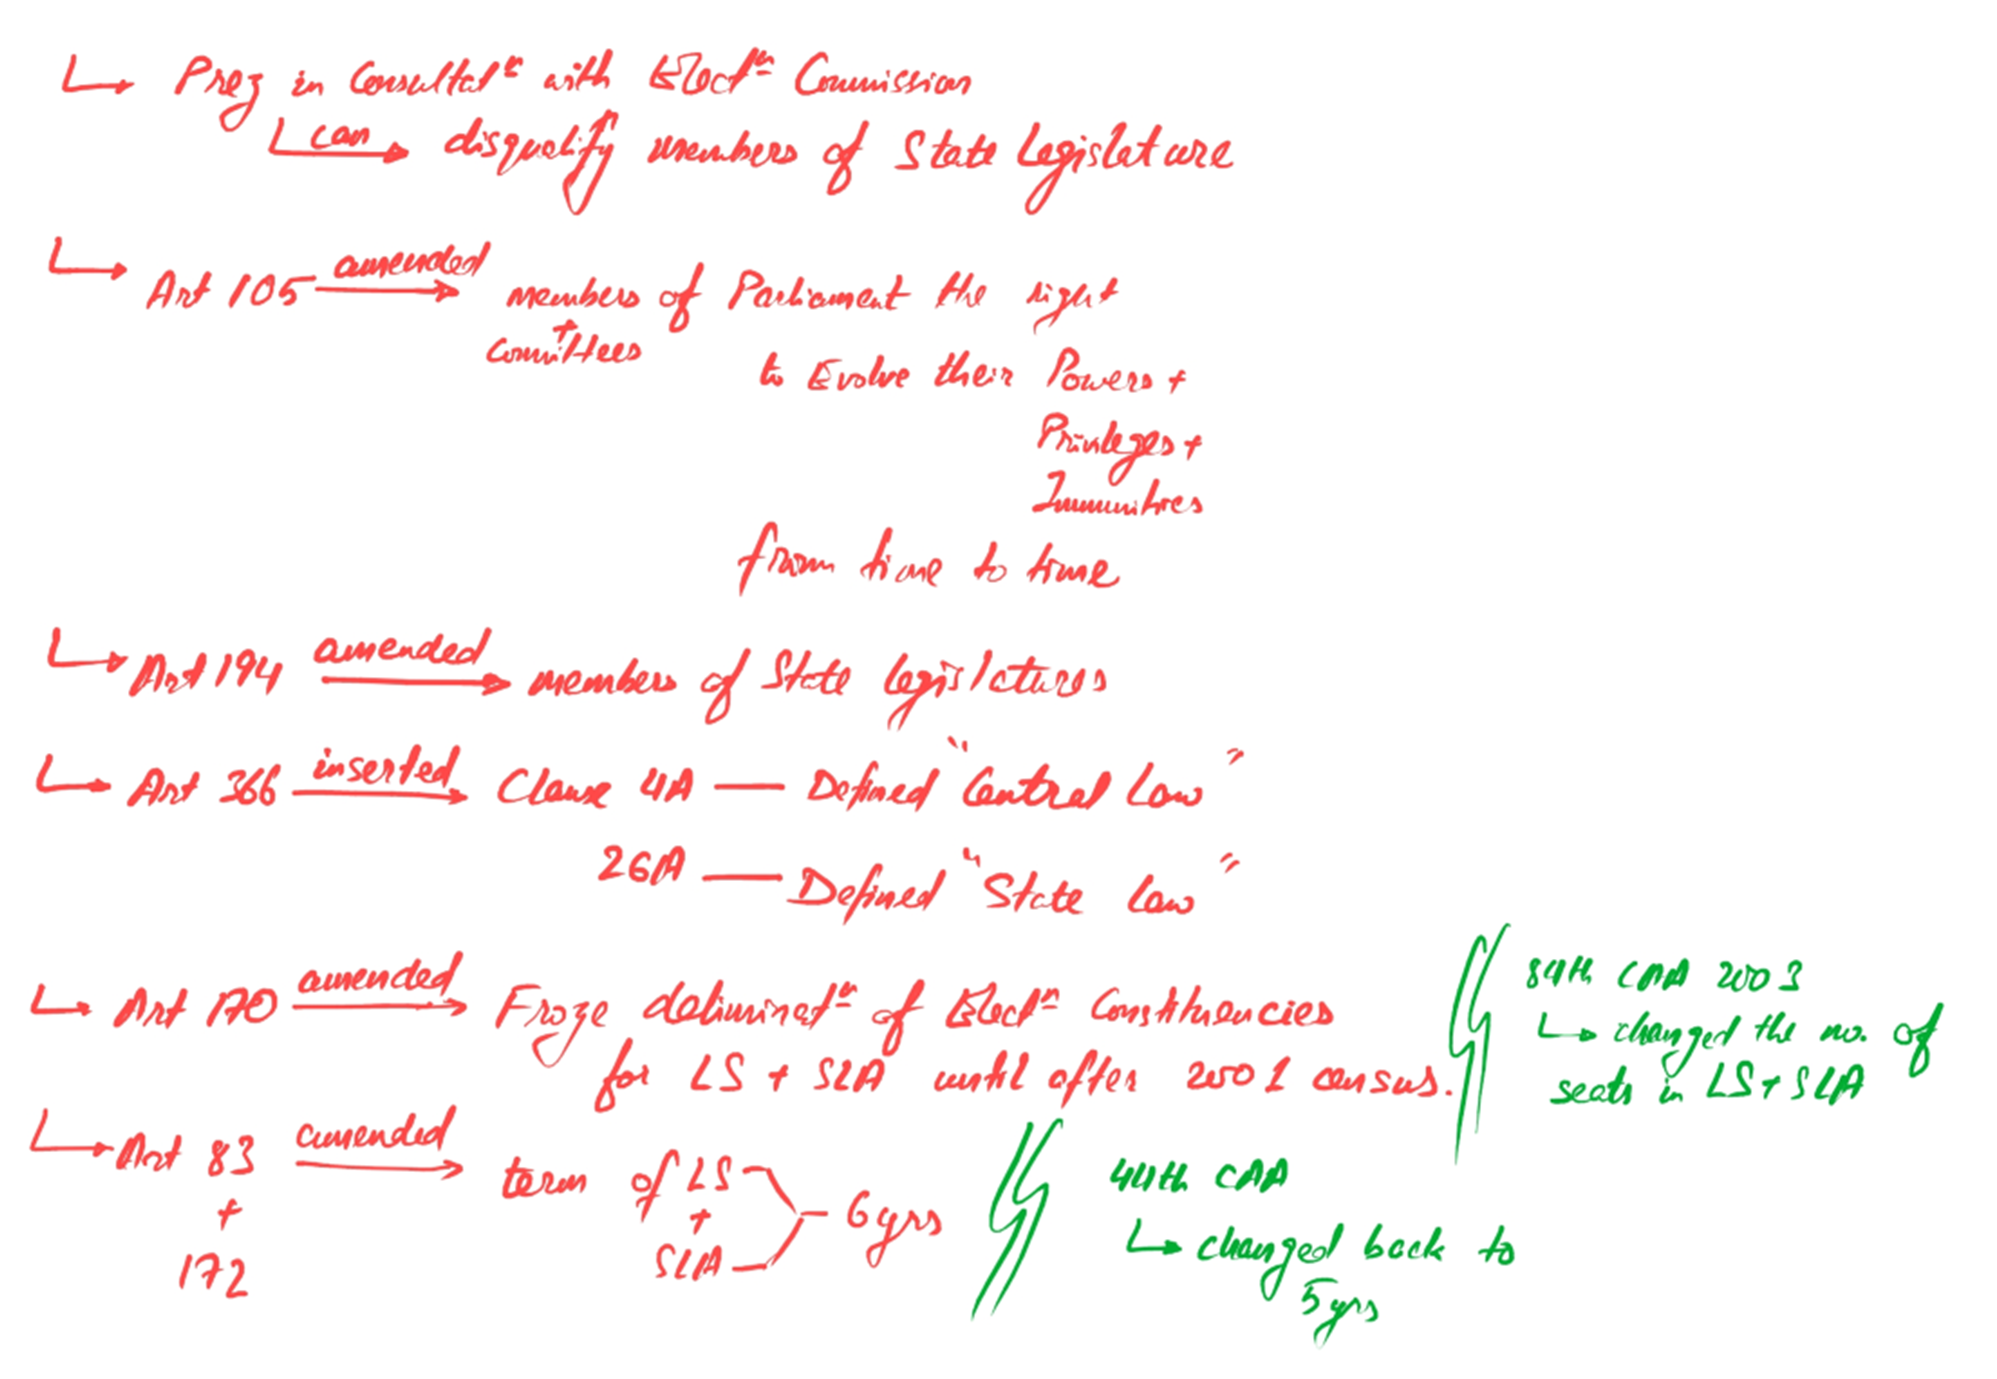 ↳ Prez in Consultatⁿ with Electⁿ Commission
↳ can → disqualify members of State Legislature
↳ Art 105 amended → members of Parliament the right
+
Committees
to Evolve their Powers +
Privileges +
Immunities
from time to time
↳ Art 194 amended → members of State legislatures
↳ Art 366 inserted → Clause 4A — Defined "Central Law"
26A — Defined "State Law"
↳ Art 170 amended → Froze deliminatⁿ of Electⁿ Constituencies
for LS + SLA until after 2001 census.
84th CAA 2003
↳ changed the no. of
seats in LS + SLA
↳ Art 83 amended → term of LS
+
172
+
SLA
— 6 yrs
44th CAA
↳ changed back to
5 yrs